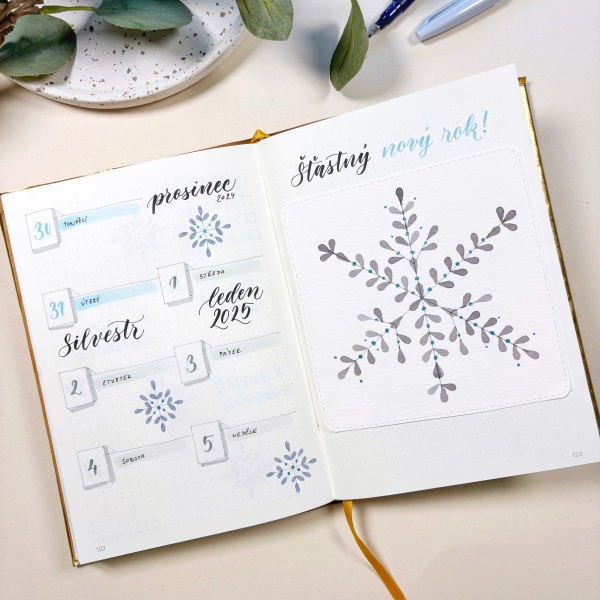 prosinec
2024
30 PONDĚLÍ
31 ÚTERÝ
Silvestr
1 STŘEDA
leden
2025
2 ČTVRTEK
3 PÁTEK
4 SOBOTA
5 NEDĚLE
122
Šťastný nový rok!
123